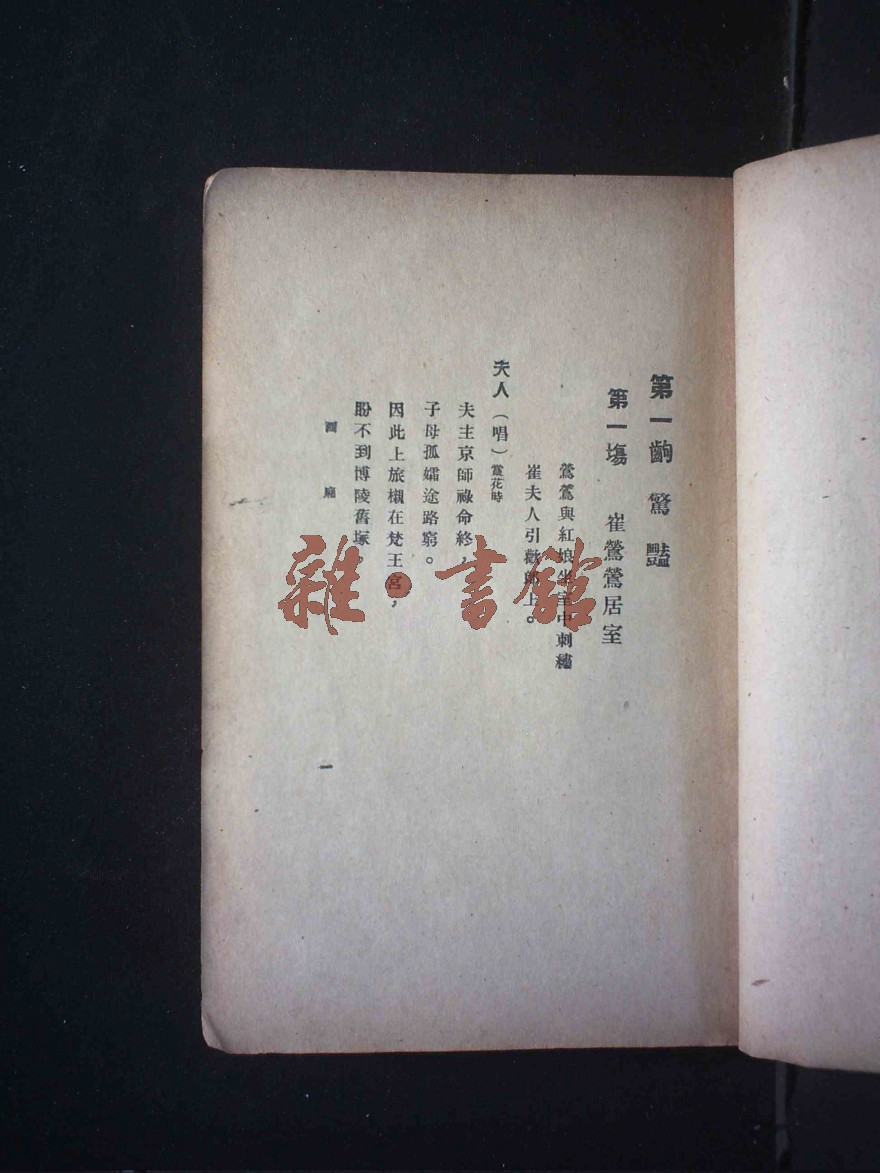 第一齣 驚豔
第一塲 崔鶯鶯居室
鶯鶯與紅娘坐室中刺繡
崔夫人引歡郎上。
夫人（唱）賞花時
夫主京師祿命終，
子母孤孀途路窮。
因此上旅櫬在梵王宮，
盼不到博陵舊塚。
西廂
一
雜·書館